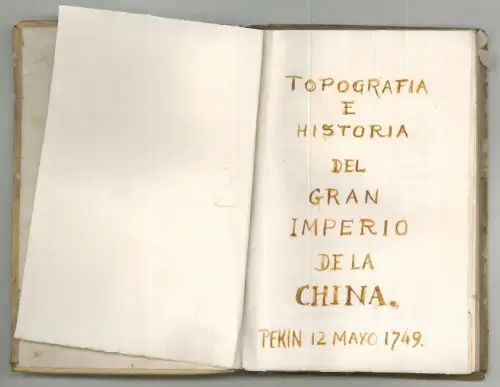 TOPOGRAFIA
E
HISTORIA
DEL
GRAN
IMPERIO
DE LA
CHINA.
PEKIN 12 MAYO 1749.